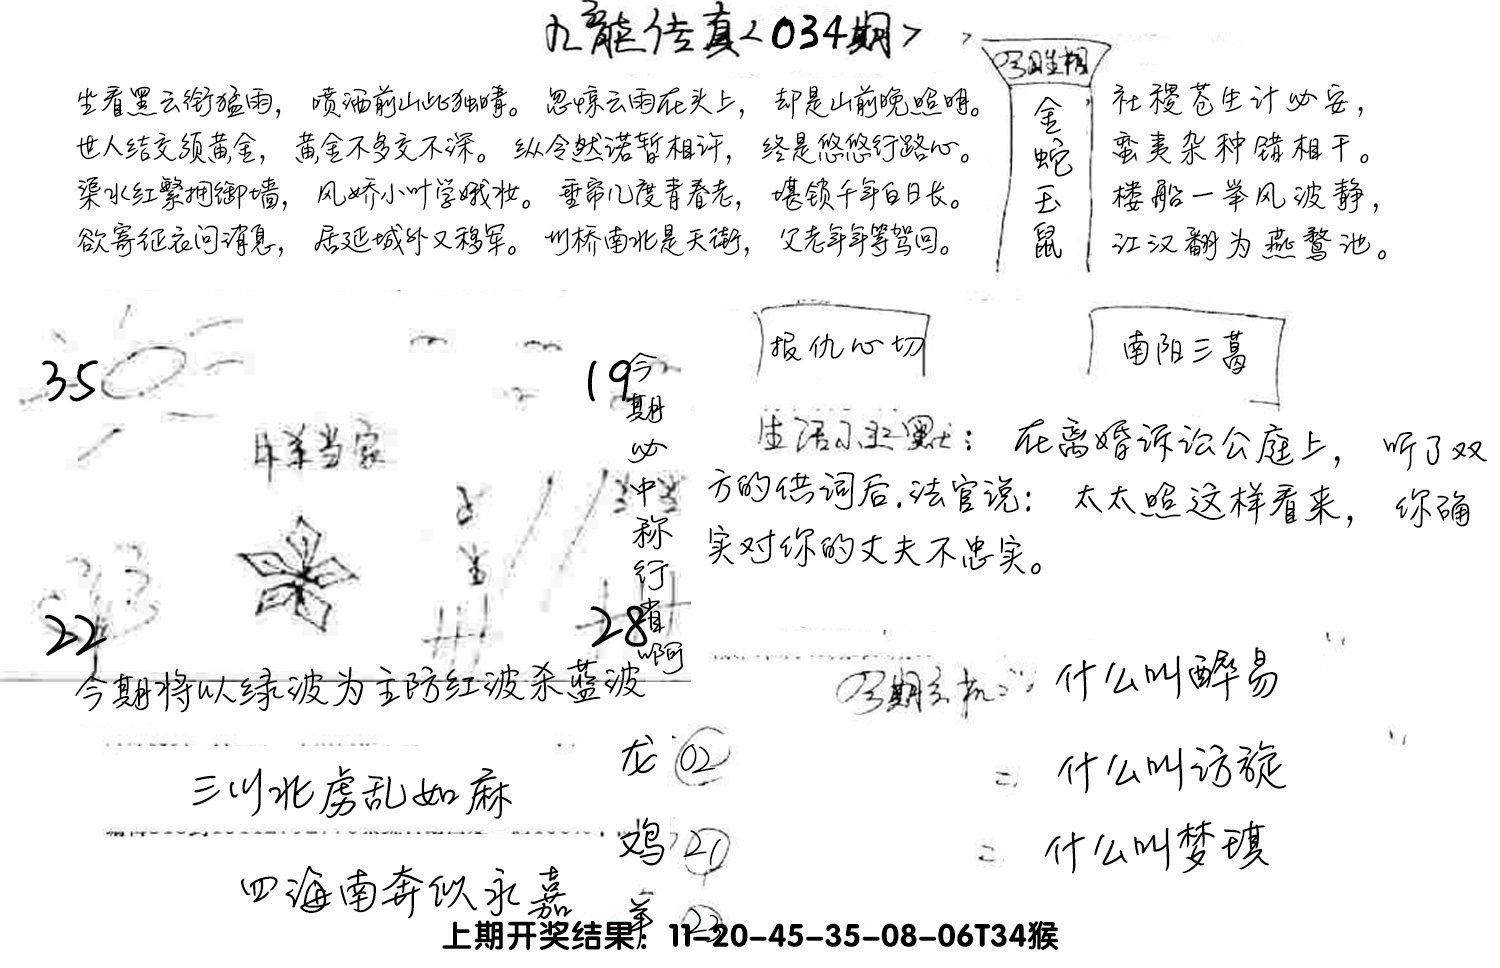 九龙传真<034期>
坐看黑云衔猛雨，喷洒前山此独晴。忽惊云雨在头上，却是山前晚照明。
世人结交须黄金，黄金不多交不深。纵令然诺暂相许，终是悠悠行路心。
渠水红繁拥御墙，风娇小叶学娥妆。垂帘几度青春老，堪锁千年白日长。
欲寄征衣问消息，居延城外又移军。州桥南北是天街，父老年年等驾回。
今期生相
金蛇玉鼠
社稷苍生计必安，
蛮夷杂种错相干。
楼船一举风波静，
江汉翻为燕鹜池。
35
19
22
28
今期必中称行省啊
今期将以绿波为主防红波杀蓝波
报仇心切
南阳三葛
生活小幽默：在离婚诉讼公庭上，听了双
方的供词后.法官说：太太照这样看来，你确
实对你的丈夫不忠实。
今期玄机：什么叫醉易
= 什么叫访旋
= 什么叫梦琪
三川北虏乱如麻
四海南奔似永嘉
龙 02
鸡 21
羊 23
上期开奖结果：11-20-45-35-08-06T34猴